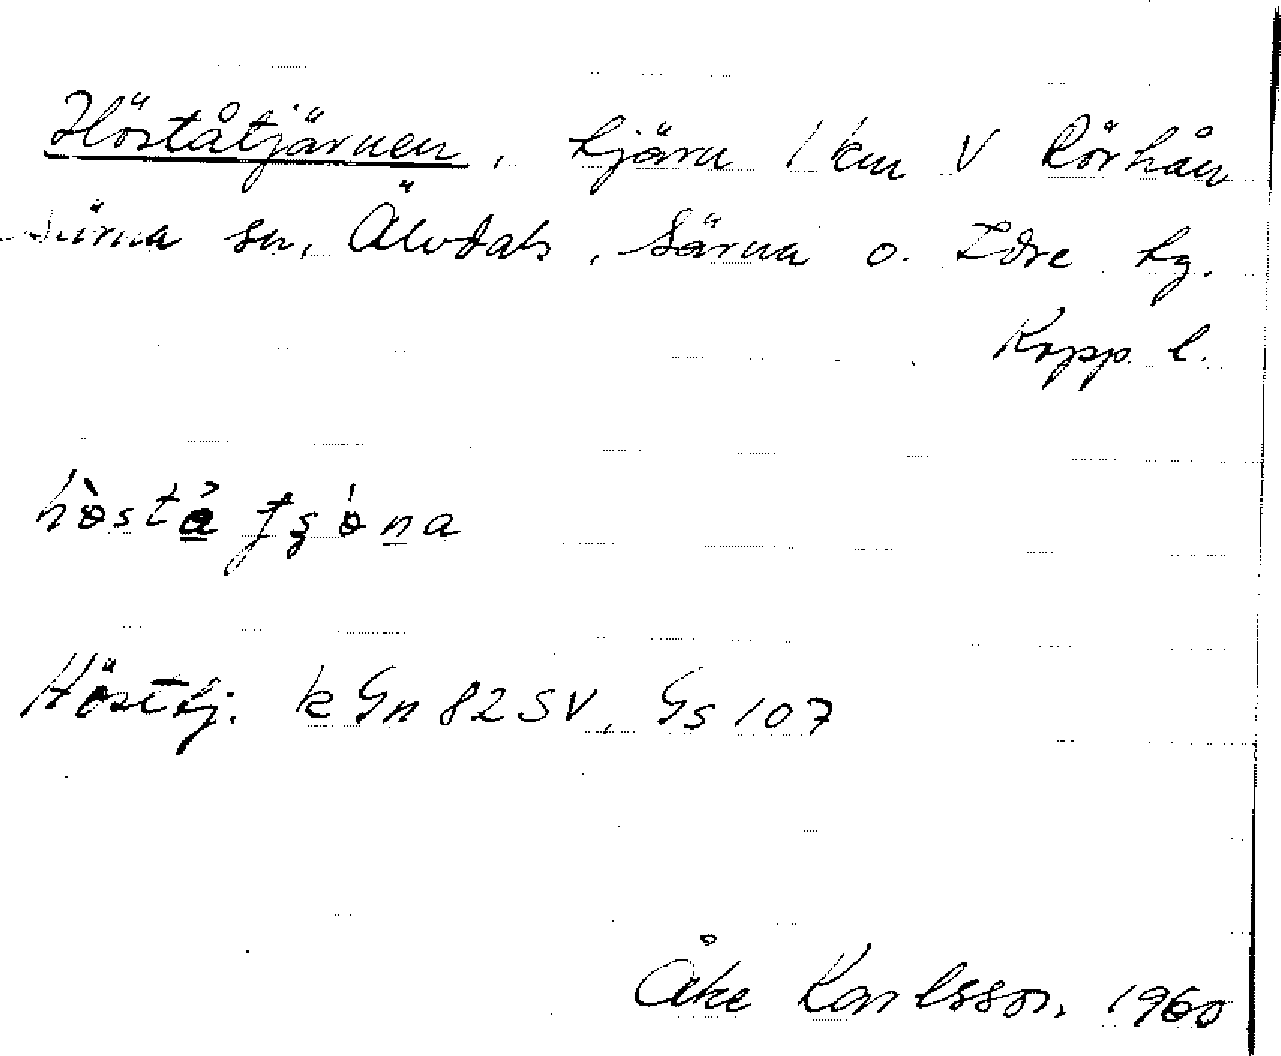 Höståtjärnen, tjärn 1 km V Rörhån
Särna sn, Älvdals, Särna o. Idre tg.
Kopp. l.
Hösttj. k Gn 82 SV, Gs 107
Åke Karlsson, 1960